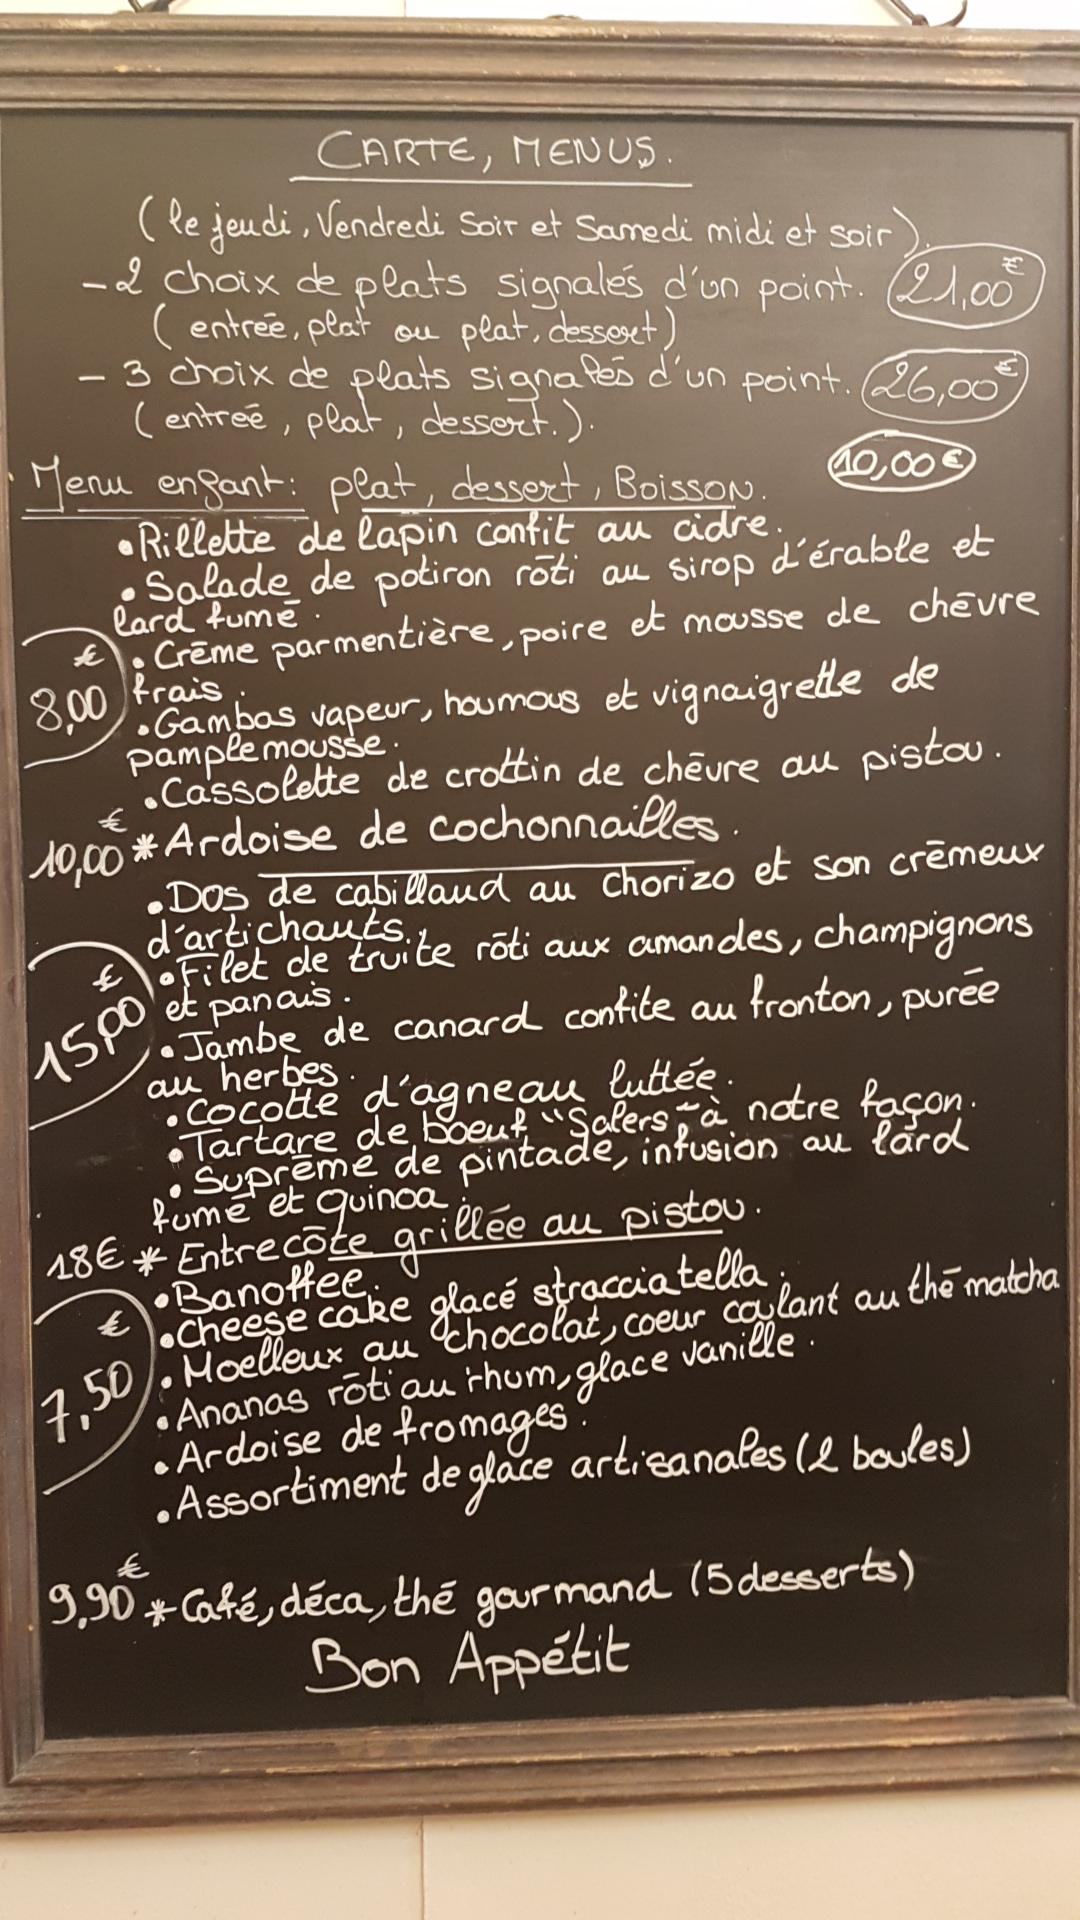 CARTE, MENUS.
(le jeudi, Vendredi Soir et Samedi midi et soir).
- 2 choix de plats signalés d'un point. 21,00€
(entrée, plat ou plat, dessert)
- 3 choix de plats signalés d'un point. 26,00€
(entreé, plat, dessert.).
10,00€
Menu enfant: plat, dessert, Boisson.
• Rillette de lapin confit au cidre.
• Salade de potiron rôti au sirop d'érable et
lard fumé.
• Crême parmentière, poire et mousse de chêvre
8,00€ frais.
• Gambas vapeur, houmous et vignaigrette de
pamplemousse.
• Cassolette de crottin de chêvre au pistou.
10,00€ * Ardoise de cochonnailles.
• Dos de cabillaud au Chorizo et son crêmeux
d'artichauts.
• Filet de truite rôti aux amandes, champignons
15,00€ et panais.
• Jambe de canard confite au fronton, purée
au herbes.
• Cocotte d'agneau luttée.
• Tartare de boeuf "Salers" à notre façon.
• Suprême de pintade, infusion au lard
fumé et quinoa.
18€ * Entrecôte grillée au pistou.
• Banoffee.
• Cheese cake glacé stracciatella.
• Moelleux au chocolat, coeur coulant au thé matcha
7,50€ • Ananas rôti au rhum, glace vanille.
• Ardoise de fromages.
• Assortiment de glace artisanales (2 boules)
9,90€ * Café, déca, thé gourmand (5 desserts)
Bon Appétit